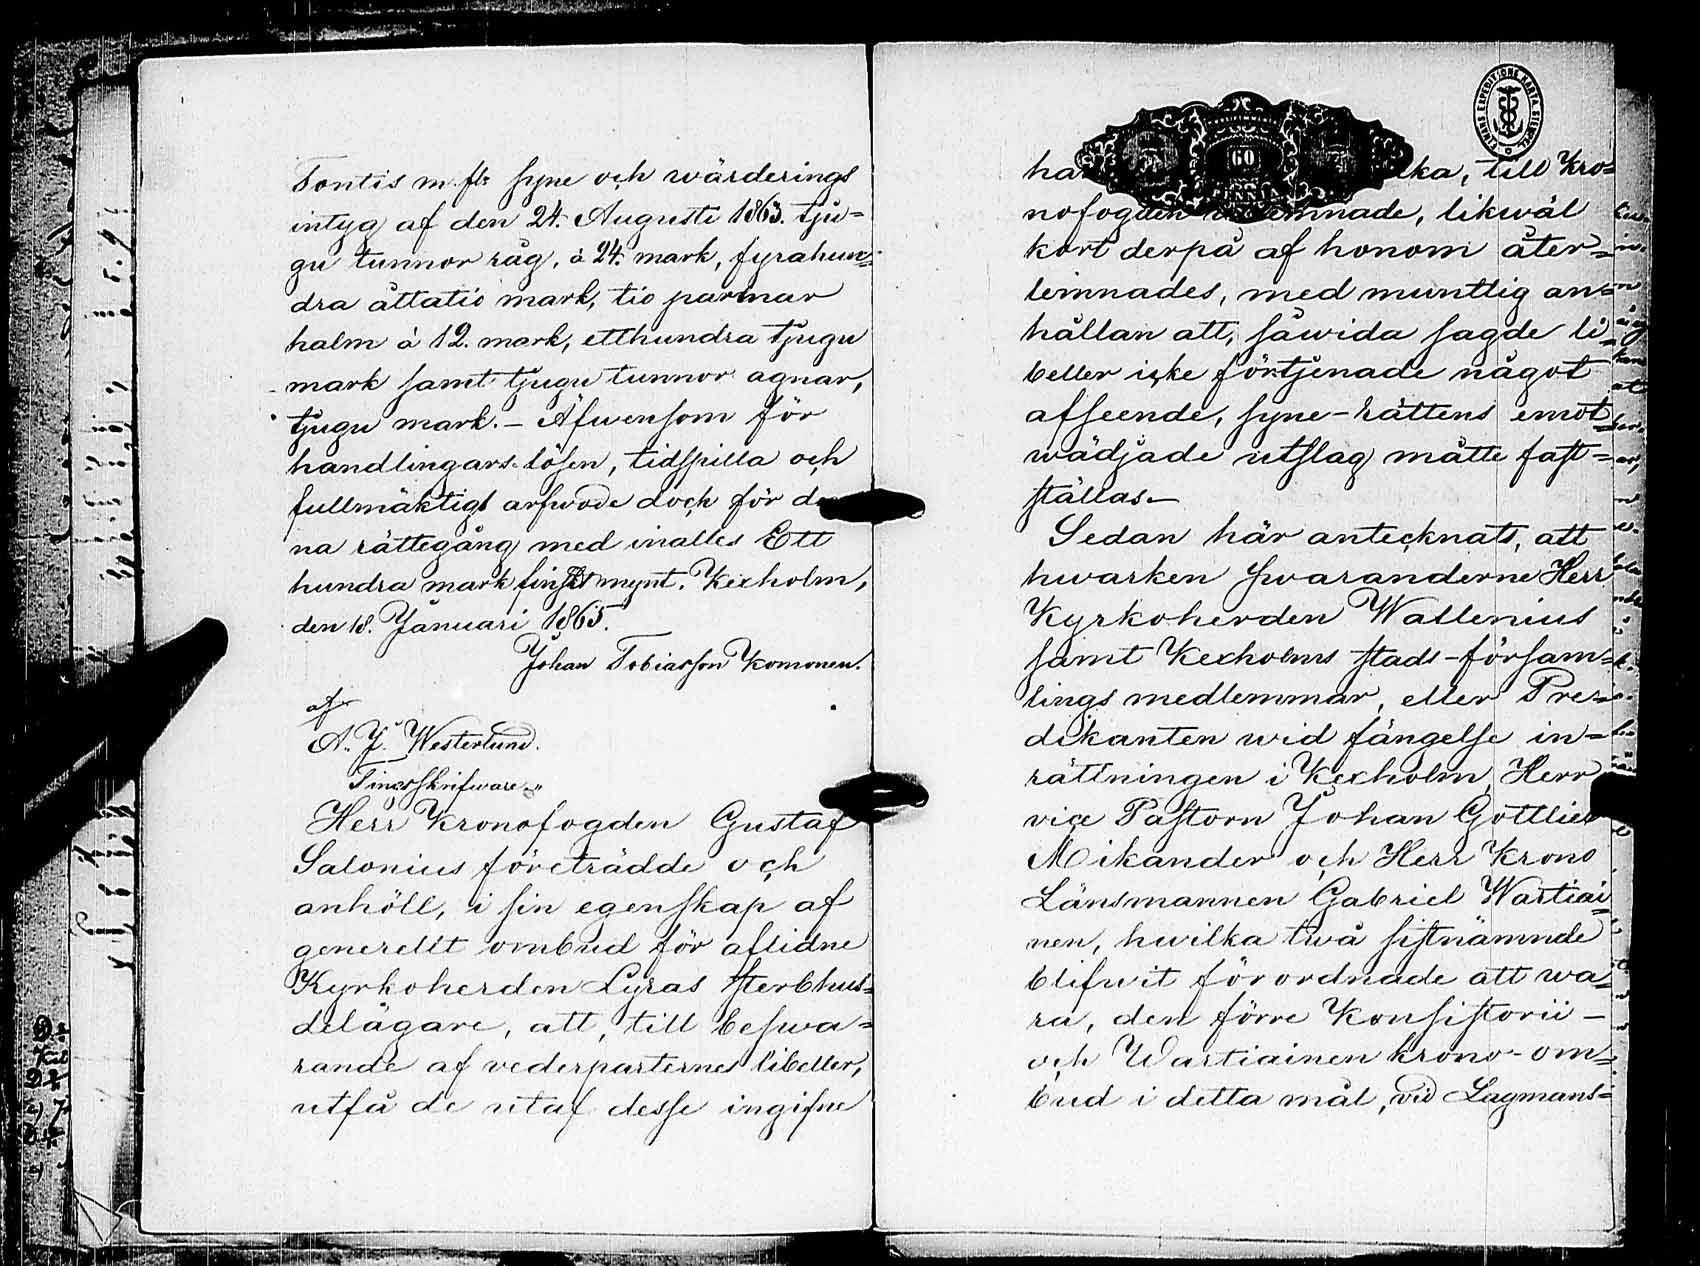 Tontis m. fl: syne och wärderings
intyg af den 24. Augusti 1863. tju=
gu tunnor råg, à 24. mark, fyrahun=
dra åttatio mark, tio parmar
halm à 12. mark, etthundra tjugu
mark samt tjugu tunnor agnar,
tjugu mark. – Äfwensom för
handlingars lösen, tidspilla och
fullmäktigs arfwode dock för
na rättegång med inalles Ett
hundra mark finskt mynt. Kexholm,
den 18. Januari 1865.
Johan Tobiasson Komonen.
af
A. J. Westerlund.
Herr Kronofogden Gustaf
Salonius företrädde och
anhöll, i sin egenskap af
generellt ombud för aflidne
Kyrkoherden Lyras sterbhus=
delägare, att, till beswa=
rande af vederparternes libeller,
utfå de utaf desse ingifne
60
ha lka, till Kro=
nofogden mnade, likwäl
kort derpå af honom åter=
lemnades, med muntlig an=
hållan att, såwida sagde li=
beller icke förtjenade något
afseende, syne-rättens emot
wädjade utslag måtte fast=
ställas.–
Sedan här antecknats, att
hwarken swaranderne Herr
Kyrkoherden Wallenius
samt Kexholms stads-försam=
lings medlemmar, eller Pre=
dikanten wid fängelse in=
rättningen i Kexholm, Herr
vice Pastorn Johan Gottlieb
Mikander och Herr Krono
Länsmannen Gabriel Wartiai=
nen, hwilka twå sistnämnde
blifwit förordnade att wa=
ra, den förre Konsistorii –
och Wartiainen krono-om=
bud i detta mål, vid Lagmans=